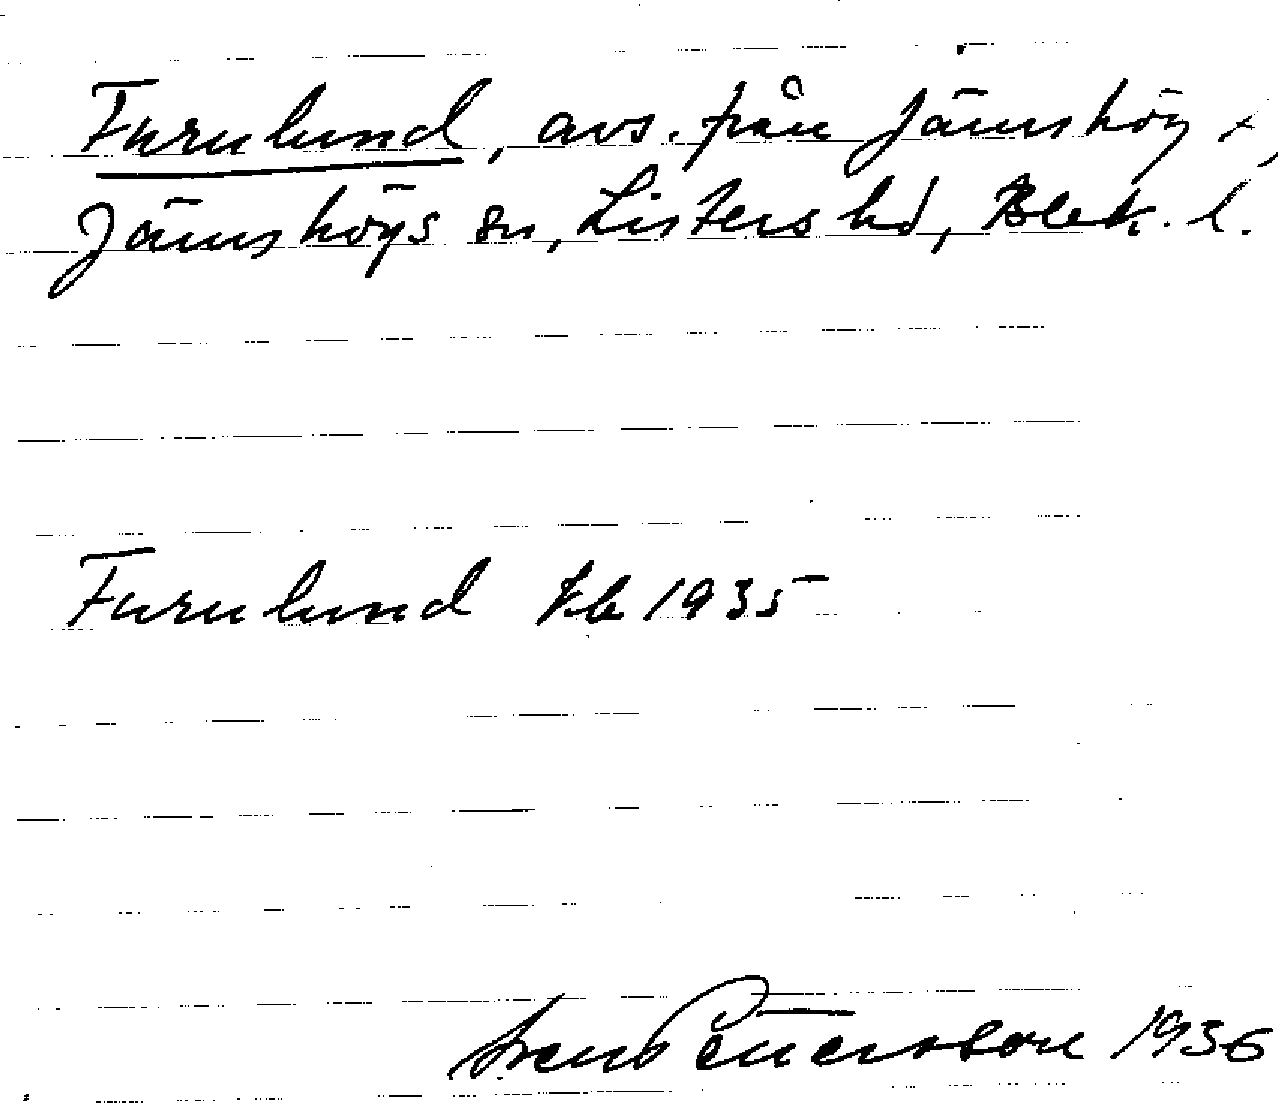 Furulund, avs. från Jämshög x,
Jämshögs sn, Listers hd, Blek. l.
Furulund Kb 1935
Sven Pettersson 1936